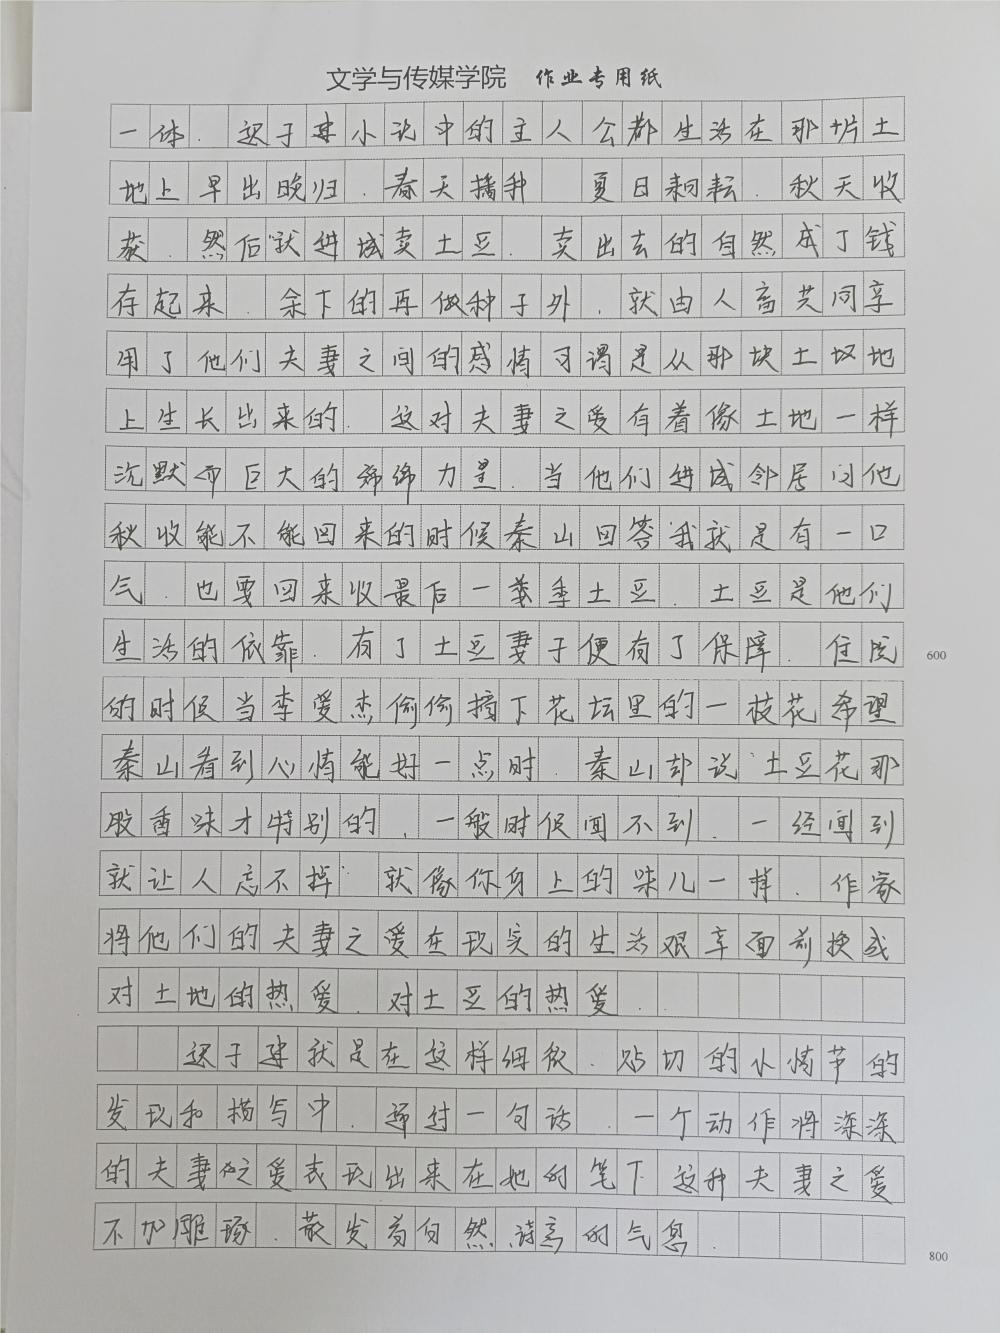 文学与传媒学院 作业专用纸
一体．迟子建小说中的主人公都生活在那片土
地上早出晚归．春天播种 夏日耕耘．秋天收
获．然后就进城卖土豆．卖出去的自然成了钱
存起来．余下的再做种子外．就由人畜共同享
用了他们夫妻之间的感情可谓是从那块土坷地
上生长出来的．这对夫妻之爱有着像土地一样
沉默而巨大的力量．当他们进城邻居问他
秋收能不能回来的时候秦山回答"我就是有一口
气．也要回来收最后一季土豆．土豆是他们
生活的依靠．有了土豆妻子便有了保障．住院
600
的时候当李爱杰偷偷摘下花坛里的一枝花希望
秦山看到心情能好一点时．秦山却说"土豆花那
股香味才特别的．一般时候闻不到．一经闻到
就让人忘不掉"就像你身上的味儿一样．作家
将他们的夫妻之爱在现实的生活艰辛面前换成
对土地的热爱．对土豆的热爱．
迟子建就是在这样细微．贴切的小情节的
发现和描写中．通过一句话．一个动作将深深
的夫妻之爱表现出来在她的笔下这种夫妻之爱
不加雕琢．散发着自然诗意的气息．
800